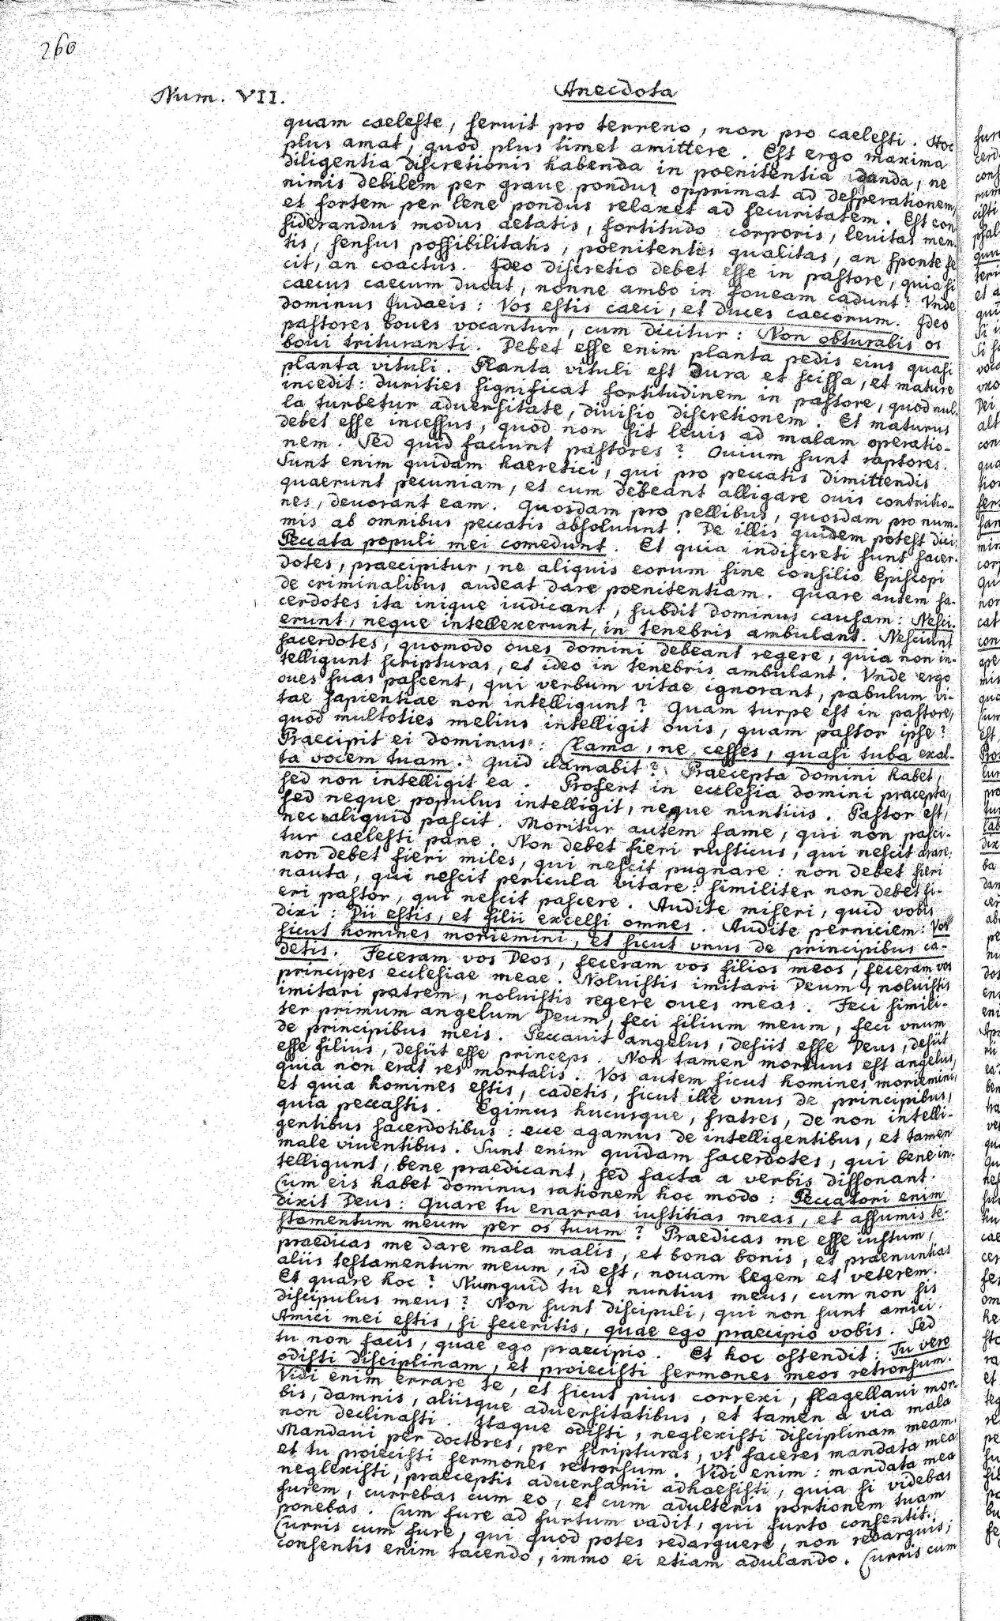 260
Num. VII.
Anecdota
quam caeleste, seruit pro terreno, non pro caelesti. Hoc
plus amat, quod plus timet amittere. Est ergo maxima
diligentia discretionis habenda in poenitentia danda, ne
nimis debilem per graue pondus opprimat ad desperationem,
et fortem per lene pondus relaxet ad securitatem. Est con
siderandus modus aetatis, fortitudo corporis, leuitas men
tis, sensus possibilitatis, poenitentis qualitas, an sponte fe
cit, an coactus. Ideo discretio debet esse in pastore, quia si
caecus caecum ducat, nonne ambo in foueam cadunt? Vnde
dominus Judaeis: Vos estis caeci, et duces caecorum. Ideo
pastores boues vocantur, cum dicitur: Non obturabis os
boui trituranti. Debet esse enim planta pedis eius quasi
planta vituli. Planta vituli est dura et scissa, et mature
incedit: durities significat fortitudinem in pastore, quod nul-
la turbetur aduersitate, diuisio discretionem. Et maturus
debet esse incessus, quod non sit leuis ad malam operatio-
nem. Sed quid faciunt pastores? Ouium sunt raptores.
Sunt enim quidam haeretici, qui pro peccatis dimittendis
quaerunt pecuniam, et cum debeant alligare ouis contritio-
nes, deuorant eam. Quosdam pro pellibus, quosdam pro num-
mis ab omnibus peccatis absoluunt. De illis quidem potest dici:
Peccata populi mei comedunt. Et quia indiscreti sunt sacer-
dotes, praecipitur, ne aliquis eorum sine consilio Episcopi
de criminalibus audeat dare poenitentiam. Quare autem sa-
cerdotes ita inique iudicant, subdit dominus causam: Nesci-
erunt, neque intellexerunt, in tenebris ambulant. Nesciunt
sacerdotes, quomodo oues domini debeant regere, quia non in-
telligunt scripturas, et ideo in tenebris ambulant. Vnde ergo
oues suas pascent, qui verbum vitae ignorant, pabulum vi-
tae sapientiae non intelligunt? Quam turpe est in pastore,
quod multoties melius intelligit ouis, quam pastor ipse?
Praecipit ei dominus: Clama, ne cesses, quasi tuba exal-
ta vocem tuam. Quid clamabit? Praecepta domini habet,
sed non intelligit ea. Prosent in ecclesia domini praecepta,
sed neque populus intelligit, neque nuntius. Pastor est,
nec aliquid pascit. Moritur autem fame, qui non pasci-
tur caelesti pane. Non debet fieri rusticus, qui nescit arare:
non debet fieri miles, qui nescit pugnare: non debet fieri
nauta, qui nescit pericula vitare: similiter non debet fi-
eri pastor, qui nescit pascere. Audite miseri, quid vobis
dixi: Dii estis, et filii excelsi omnes. Audite perniciem: Vos
sicut homines moriemini, et sicut vnus de principibus ca-
detis. Feceram vos Deos, feceram vos filios meos, feceram vos
principes ecclesiae meae. Noluistis imitari Deum, noluistis
imitari patrem, noluistis regere oues meas. Feci simili-
ter primum angelum Deum, feci filium meum, feci vnum
de principibus meis. Peccauit angelus, desiit esse Deus, desiit
esse filius, desiit esse princeps. Non tamen mortuus est angelus,
quia non erat res mortalis. Vos autem sicut homines moriemini,
et quia homines estis, cadetis, sicut ille vnus de principibus,
quia peccastis. Egimus hucusque, fratres, de non intelli-
gentibus sacerdotibus: ecce agamus de intelligentibus, et tamen
male viuentibus. Sunt enim quidam sacerdotes, qui bene in-
telligunt, bene praedicant, sed facta a verbis dissonant.
Cum eis habet dominus rationem hoc modo: Peccatori enim
dixit Deus: Quare tu enarras iustitias meas, et assumis te-
stamentum meum per os tuum? Praedicas me esse iustum,
praedicas me dare mala malis, et bona bonis, et praenuntias
aliis testamentum meum, id est, nouam legem et veterem.
Et quare hoc? Numquid tu es nuntius meus, cum non sis
discipulus meus? Non sunt discipuli, qui non sunt amici.
Amici mei estis, si feceritis, quae ego praecipio vobis. Sed
tu non facis, quae ego praecipio. Et hoc ostendit: Tu vero
odisti disciplinam, et proiecisti sermones meos retrorsum.
Vidi enim errare te, et sicut pius correxi, flagellaui mor-
bis, damnis, aliisque aduersitatibus, et tamen a via mala
non declinasti. Itaque odisti, neglexisti disciplinam meam.
Mandaui per doctores, per scripturas, vt faceres mandata mea
et tu proiecisti sermones retrorsum. Vidi enim: mandata mea
neglexisti, praeceptis aduersarii adhaesisti, quia si videbas
furem, currebas cum eo, et cum adulteris portionem tuam
ponebas. Cum fure ad furtum vadit, qui furto consentit.
Curris cum fure, qui quod potes redarguere, non redarguis;
consentis enim tacendo, immo ei etiam adulando. Curris cum